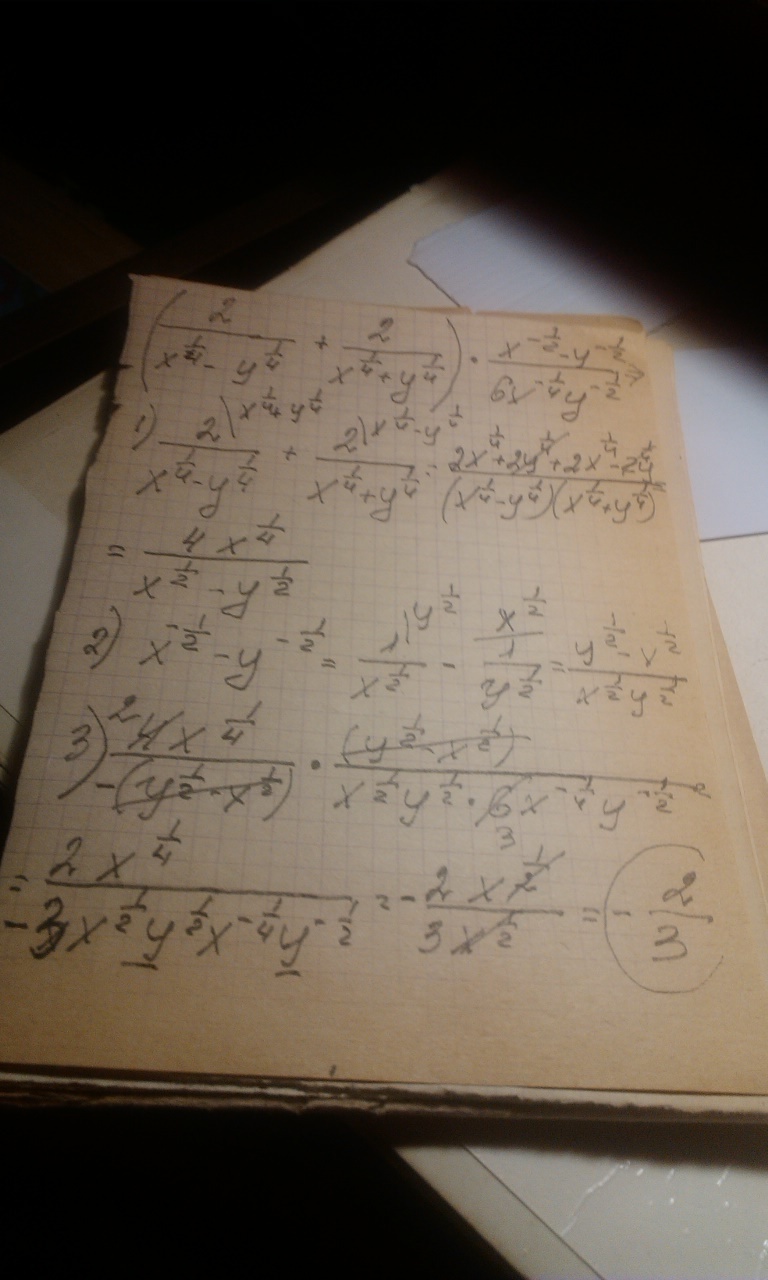 (2/(x^(1/4) - y^(1/4)) + 2/(x^(1/4) + y^(1/4))) · (x^(-1/2) - y^(-1/2))/(6x^(-1/4) y^(-1/2)) =
1) 2\x^(1/4)+y^(1/4) /(x^(1/4) - y^(1/4)) + 2\x^(1/4)-y^(1/4) /(x^(1/4) + y^(1/4)) = (2x^(1/4) + 2y^(1/4) + 2x^(1/4) - 2y^(1/4))/((x^(1/4) - y^(1/4))(x^(1/4) + y^(1/4))) =
= 4x^(1/4)/(x^(1/2) - y^(1/2))
2) x^(-1/2) - y^(-1/2) = 1\y^(1/2) /x^(1/2) - 1\x^(1/2) /y^(1/2) = (y^(1/2) - x^(1/2))/(x^(1/2) y^(1/2))
3) 2 4x^(1/4)/(-(y^(1/2) - x^(1/2))) · (y^(1/2) - x^(1/2))/(x^(1/2) y^(1/2) · 6 3 x^(-1/4) y^(-1/2)) =
= 2x^(1/4)/(-3x^(1/2) y^(1/2) x^(-1/4) y^(-1/2)) = - 2x^(1/2)/(3x^(1/2)) = - 2/3